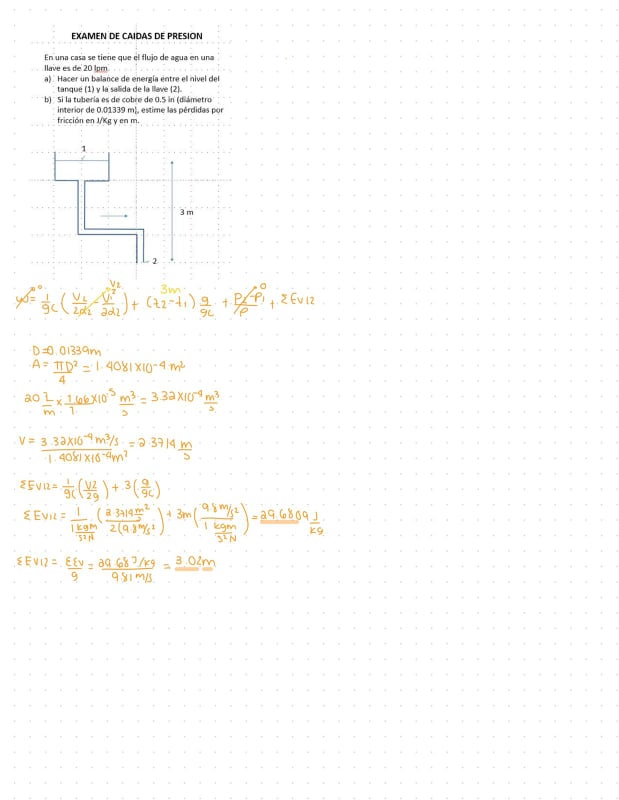 EXAMEN DE CAIDAS DE PRESION
En una casa se tiene que el flujo de agua en una
llave es de 20 lpm.
a) Hacer un balance de energía entre el nivel del
tanque (1) y la salida de la llave (2).
b) Si la tubería es de cobre de 0.5 in (diámetro
interior de 0.01339 m), estime las pérdidas por
fricción en J/Kg y en m.
1
3 m
2
3m
D=0.01339m
A= πD²/4 = 1.4081x10-4 m²
20 L/m x 1.66x10-5/1 m³/s = 3.32x10-4 m³/s
V = 3.32x10-4m³/s / 1.4081x10-4m² = 2.3714 m/s
ΣEv12= 1/gc (V2/2g) + 3(g/gc)
ΣEv12= 1/(1 kgm/s²N) (2.3719m²/2(9.8m/s²)) + 3m(9.8m/s²/(1 kgm/s²N)) = 29.6809 J/kg
ΣEv12= ΣEv/g = 29.68J/kg / 9.81m/s = 3.02m